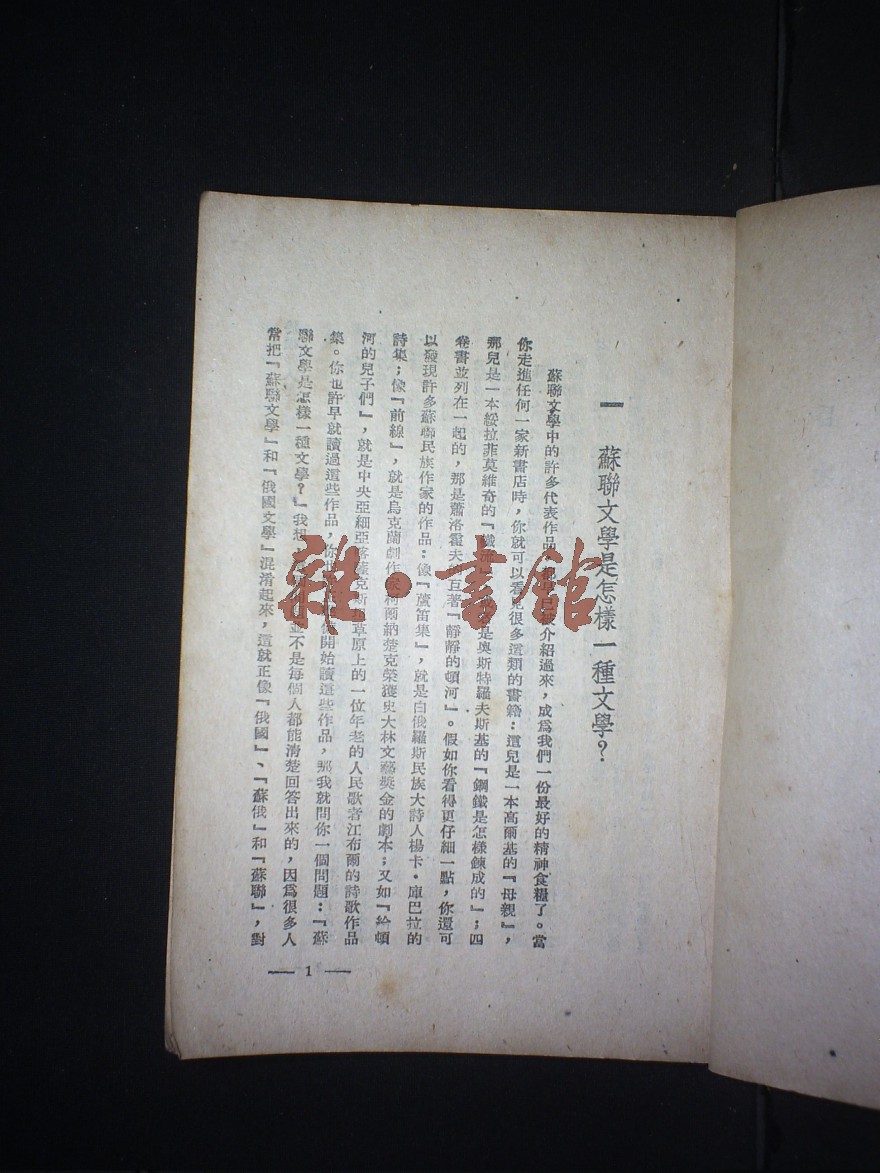 一　蘇聯文學是怎樣一種文學？
蘇聯文學中的許多代表作品，介紹過來，成爲我們一份最好的精神食糧了。當
你走進任何一家新書店時，你就可以看見很多這類的書籍：這兒是一本高爾基的『母親』，
那兒是一本綏拉菲莫維奇的『鐵流』是奧斯特羅夫斯基的『鋼鐵是怎樣鍊成的』；四
卷書並列在一起的，那是蕭洛霍夫的巨著『靜靜的頓河』。假如你看得更仔細一點，你還可
以發現許多蘇聯民族作家的作品：像『蘆笛集』，就是白俄羅斯民族大詩人楊卡·庫巴拉的
詩集；像『前線』，就是烏克蘭劇作家柯爾納楚克榮獲史大林文藝獎金的劇本；又如『給頓
河的兒子們』，就是中央亞細亞喀薩克斯坦草原上的一位年老的人民歌者江布爾的詩歌作品
集。你也許早就讀過這些作品，你也開始讀這些作品，那我就問你一個問題：『蘇
聯文學是怎樣一種文學？』我想並不是每個人都能清楚回答出來的，因爲很多人
常把『蘇聯文學』和『俄國文學』混淆起來，這就正像『俄國』、『蘇俄』和『蘇聯』，對
— 1 —
雜·書館